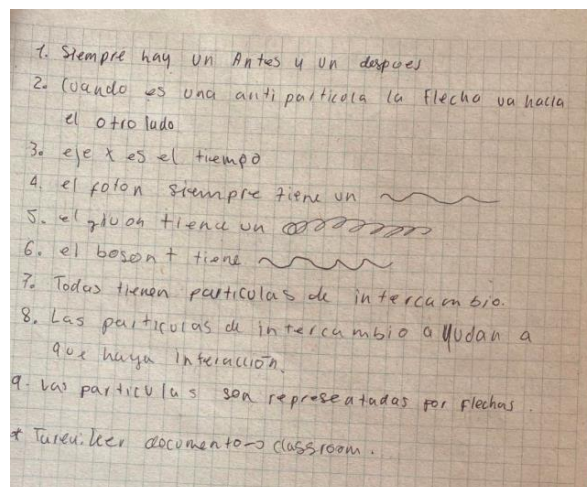 1. Siempre hay un Antes y un despues
2. Cuando es una anti particula la flecha va hacia
el otro lado
3. eje x es el tiempo
4. el foton siempre tiene un
5. el gluon tiene un
6. el boson + tiene
7. Todas tienen particulas de intercambio.
8. Las particulas de intercambio ayudan a
que haya interacción.
9. Las particulas son represeatadas por flechas.
* Tarea: leer documento → classroom.